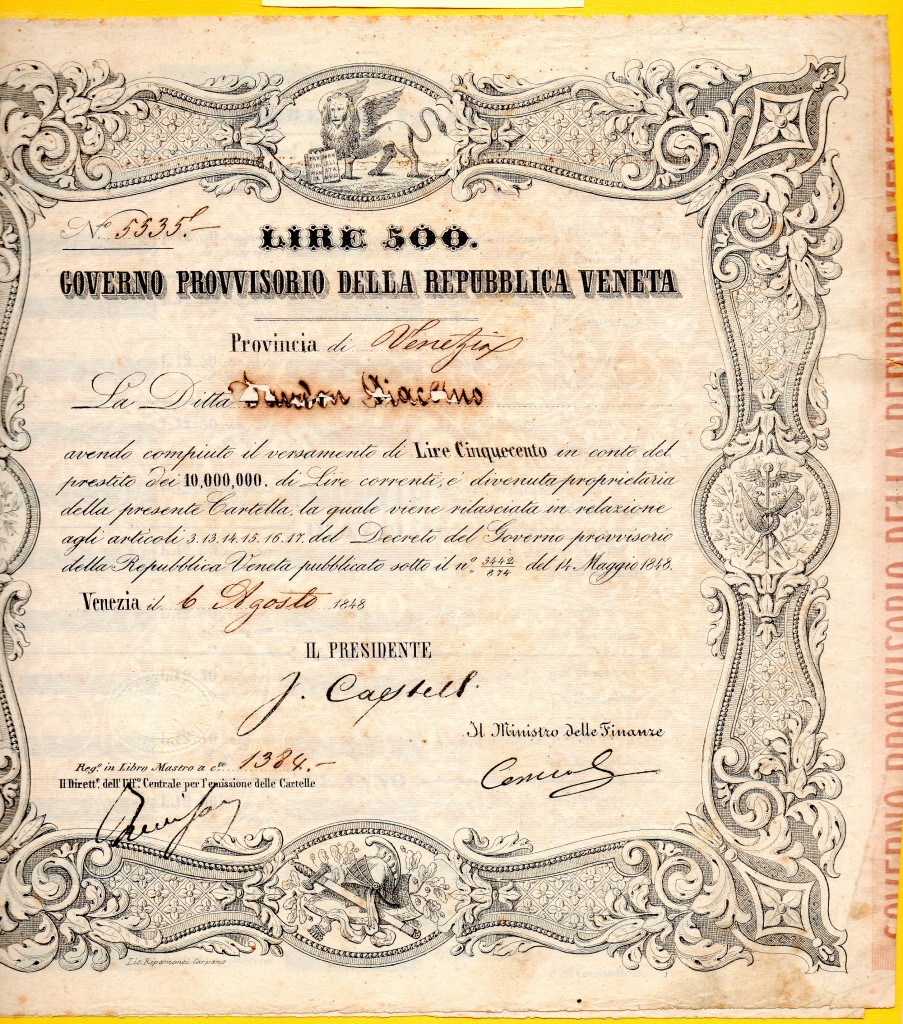 Nº 5535
LIRE 500.
GOVERNO PROVVISORIO DELLA REPUBBLICA VENETA
Provincia di Venezia
La Ditta Giacomo
avendo compiuto il versamento di Lire Cinquecento in conto del
prestito dei 10,000,000. di Lire correnti, è divenuta proprietaria
della presente Cartella, la quale viene rilasciata in relazione
agli articoli 3. 13. 14. 15. 16. 17. del Decreto del Governo provvisorio
della Repubblica Veneta pubblicato sotto il nº 3442/874 del 14. Maggio 1848.
Venezia il 6 Agosto 1848
IL PRESIDENTE
J. Castelli
Il Ministro delle Finanze
Regº in Libro Mastro a cte 1384.-
Il Dirett. dell'Uffº Centrale per l'emissione delle Cartelle
Lit. Ripamonti Carpano
GOVERNO PROVVISORIO DELLA REPUBBLICA VENETA